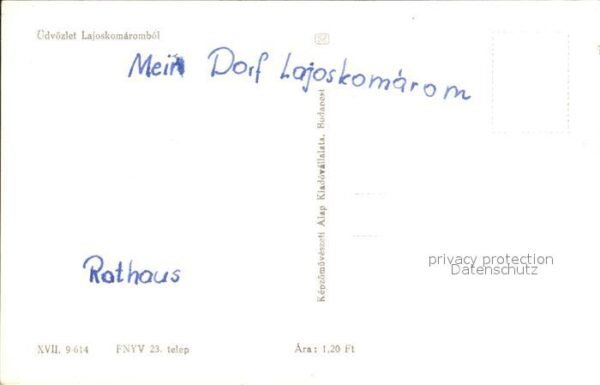 Üdvözlet Lajoskomáromból
Mein Dorf Lajoskomárom
Képzőművészeti Alap Kiadóvállalata, Budapest
privacy protection
Datenschutz
Rathaus
XVII. 9-614 FNYV 23. telep Ára: 1,20 Ft